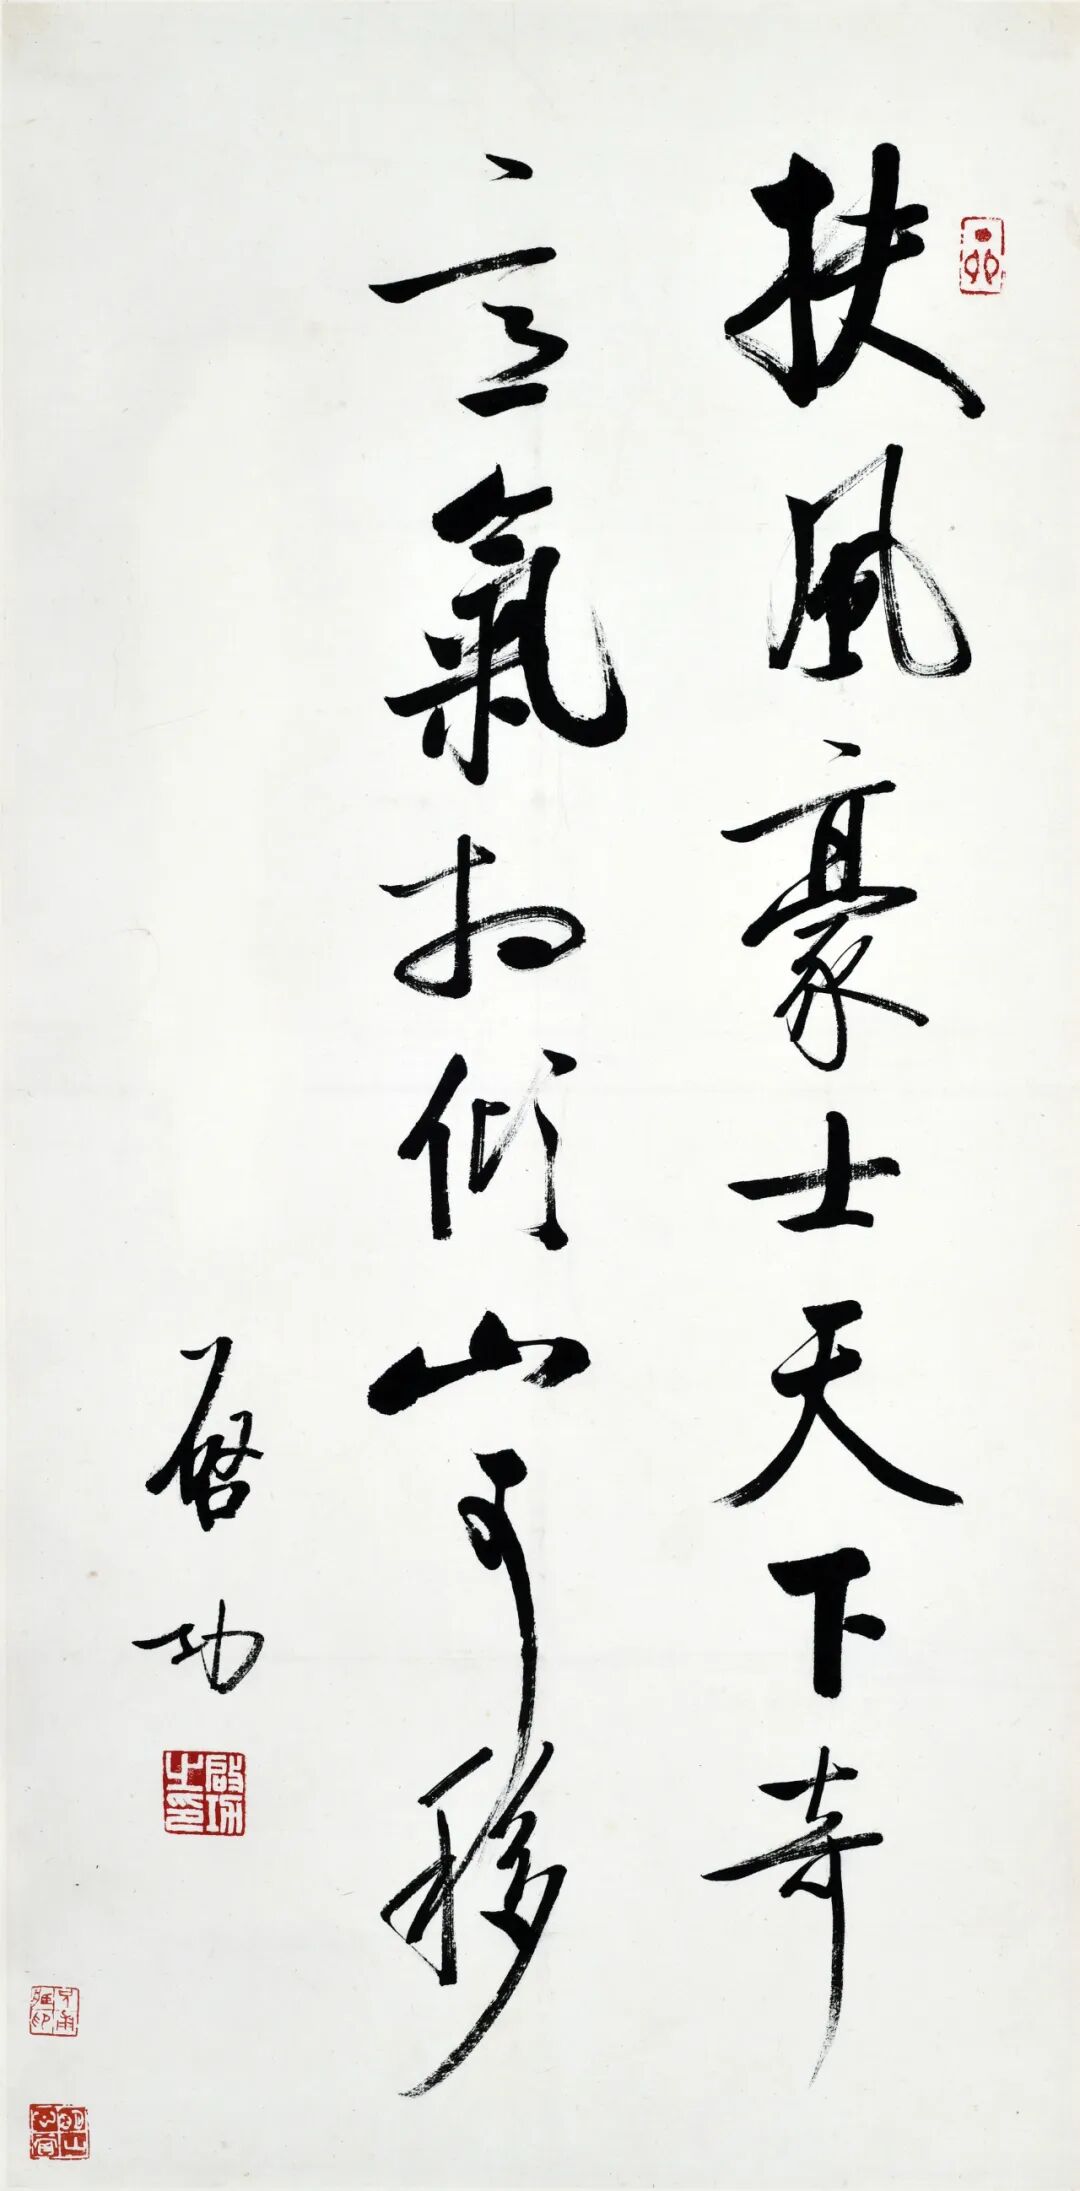 扶風豪士天下奇
意氣相傾山可移
啓功
啟功之印